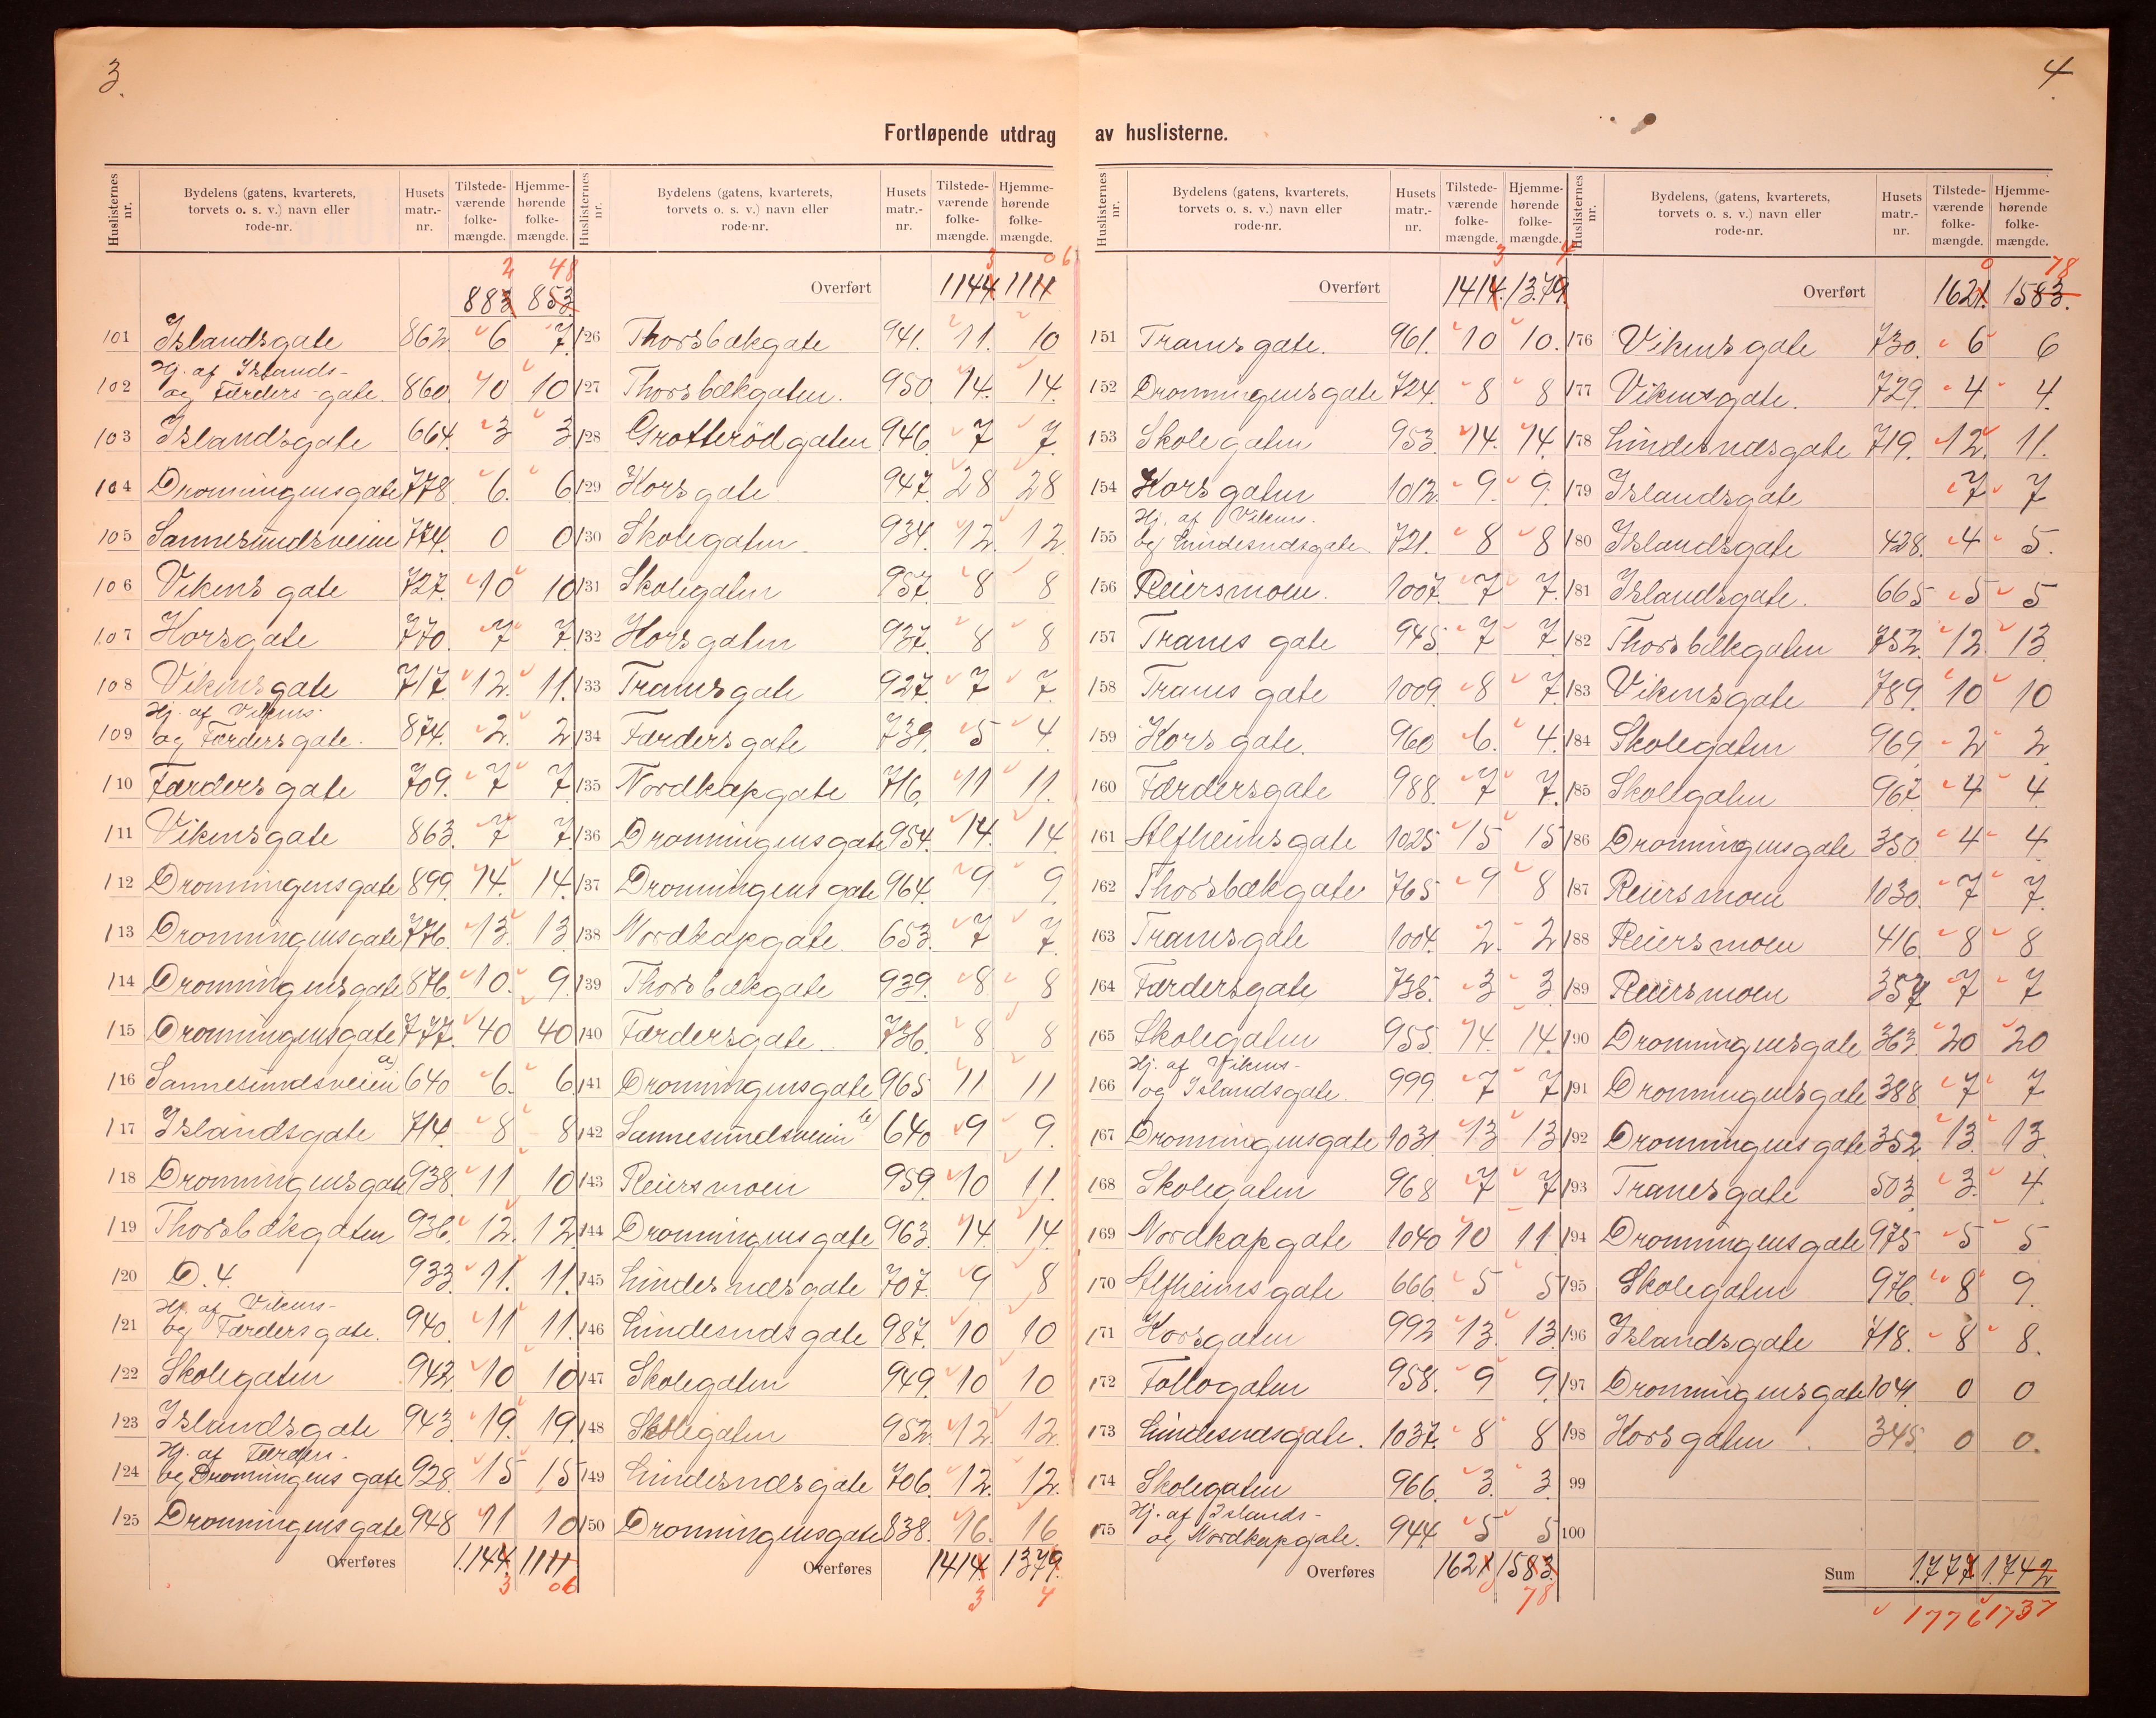 3.
4.
Fortløpende utdrag av huslisterne.
Huslisternes nr. Bydelens (gatens, kvarterets, torvets o. s. v.) navn eller rode-nr. Husets matr.-nr. Tilstedeværende folkemængde. Hjemmehørende folkemængde.
2 48
883 853
101 Islandsgate 862 6 7
102 Hj. af Islands- og Færders-gate. 860. 10 10
103 Islandsgate 664. 3 3
104 Dronningensgate 778. 6. 6
105 Sannesundsveien 774. 0 0
106 Vikens gate 727. 10 10
107 Korsgate 770. 7 7
108 Vikensgate 717. 12. 11.
109 Hj. af Vikens- og Færders gate. 874. 2. 2
110 Færders gate 709. 7 7
111 Vikensgate 863. 7 7
112 Dronningensgate 899. 14. 14.
113 Dronningensgate 776. 13. 13
114 Dronningensgate 876. 10. 9.
115 Dronningensgate 777. 40 40
116 Sannesundsveien a) 640 6. 6
117 Islandsgate 714. 8 8
118 Dronningensgate 938. 11 10
119 Thorsbækgaten 936. 12. 12
120 D. 4. 933. 11. 11.
121 Hj. af Vikens- og Færders gate. 940. 11 11.
122 Skolegaten 942. 10 10
123 Islandsgate 943. 19. 19.
124 Hj. af Færders- og Dronningens gate 928. 15 15
125 Dronningensgate 948 11 10
Overføres 1.144. 1111
3 06
Huslisternes nr. Bydelens (gatens, kvarterets, torvets o. s. v.) navn eller rode-nr. Husets matr.-nr. Tilstedeværende folkemængde. Hjemmehørende folkemængde.
3 06
Overført 1144 1111
126 Thorsbækgate 941. 11. 10
127 Thorsbækgaten. 950. 14. 14.
128 Grotterødgaten 946. 7 7.
129 Korsgate 947. 28 28
130 Skolegaten 934. 12. 12
131 Skolegaten 957. 8 8
132 Korsgaten 937. 8 8
133 Transgate 927. 7 7.
134 Færders gate 739. 5 4.
135 Nordkapgate 716. 11 11.
136 Dronningens gate 954. 14. 14
137 Dronningens gate 964. 9 9.
138 Nordkapgate. 653. 7 7.
139 Thorsbækgate 939. 8 8
140 Færdersgate. 736. 8 8
141 Dronningensgate 965 11 11
142 Sannesundsveien b) 640 9 9.
143 Reiersmoen 959. 10 11.
144 Dronningens gate 963. 14. 14.
145 Lindesnæsgate 707. 9 8
146 Lindesnæsgate 987. 10 10
147 Skolegaten 949. 10 10
148 Skolegaten 952. 12. 12.
149 Lindesnæsgate 706. 12. 12.
150 Dronningensgate 838. 16. 16
Overføres 1414. 1379.
3 4
Huslisternes nr. Bydelens (gatens, kvarterets, torvets o. s. v.) navn eller rode-nr. Husets matr.-nr. Tilstedeværende folkemængde. Hjemmehørende folkemængde.
3 4
Overført 1414. 1379
151 Transgate. 961. 10 10.
152 Dronningensgate 724. 8 8
153 Skolegaten 953. 14. 14.
154 Korsgaten 1012. 9. 9.
155 Hj. af Vikens- og Lindesnæsgate. 721. 8 8
156 Reiersmoen. 1007. 7 7.
157 Trans gate 945. 7 7.
158 Trans gate 1009. 8 7.
159 Kors gate. 960 6. 4.
160 Færdersgate 988. 7 7.
161 Alfheimsgate 1025 15 15
162 Thorsbækgate 765 9 8
163 Transgate 1004. 2. 2
164 Færdersgate 738. 3 3
165 Skolegaten 955. 14. 14.
166 Hj. af Vikens- og Islandsgate. 999. 7 7
167 Dronningensgate 1031. 13 13
168 Skolegaten 968 7 7
169 Nordkapgate 1040 10 11
170 Alfheimsgate 666. 5 5
171 Korsgaten 992 13. 13
172 Follogaten 958. 9 9
173 Lindesnæsgate. 1037. 8 8
174 Skolegaten 966. 3. 3
175 Hj. af Islands- og Nordkapgate. 944. 5 5
Overføres 1621 1583.
0 78
Huslisternes nr. Bydelens, (gatens, kvarterets, torvets o. s. v.) navn eller rode-nr. Husets matr.-nr. Tilstedeværende folkemængde. Hjemmehørende folkemængde.
0 78
Overført 1621. 1583.
176 Vikensgate 730. 6 6
177 Vikensgate. 729. 4 4.
178 Lindesnæsgate 719. 12. 11.
179 Islandsgate 7 7
180 Islandsgate 428. 4 5.
181 Islandsgate. 665 5 5
182 Thorsbækgaten 752. 12. 13
183 Vikensgate 789. 10 10
184 Skolegaten 969. 2 2
185 Skolegaten 967. 4 4.
186 Dronningensgate 350 4 4.
187 Reiersmoen 1030. 7 7.
188 Reiersmoen 416. 8 8
189 Reiersmoen 357 7 7
190 Dronningensgate 363. 20 20
191 Dronningensgate 388. 7 7
192 Dronningensgate 352 13. 13
193 Transgate 503 3. 4.
194 Dronningensgate 975 5 5
195 Skolegaten 976. 8 9.
196 Islandsgate 718. 8 8.
197 Dronningensgate 1041. 0 0
198 Korsgaten 345. 0 0.
99
100
Sum 1.777. 1.742
1776 1737